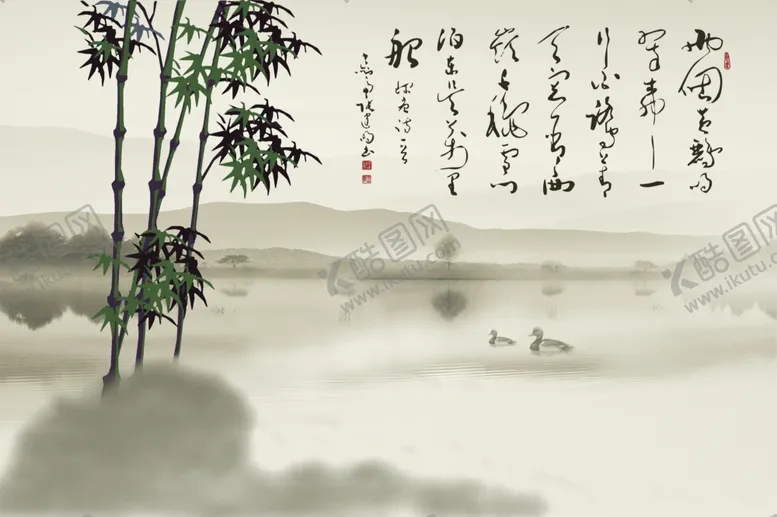 两个黄鹂鸣
翠柳一
行白鹭上青
天窗含西
岭千秋雪门
泊东吴万里
船
酷图网
www.ikutu.com
酷图网
www.ikutu.com